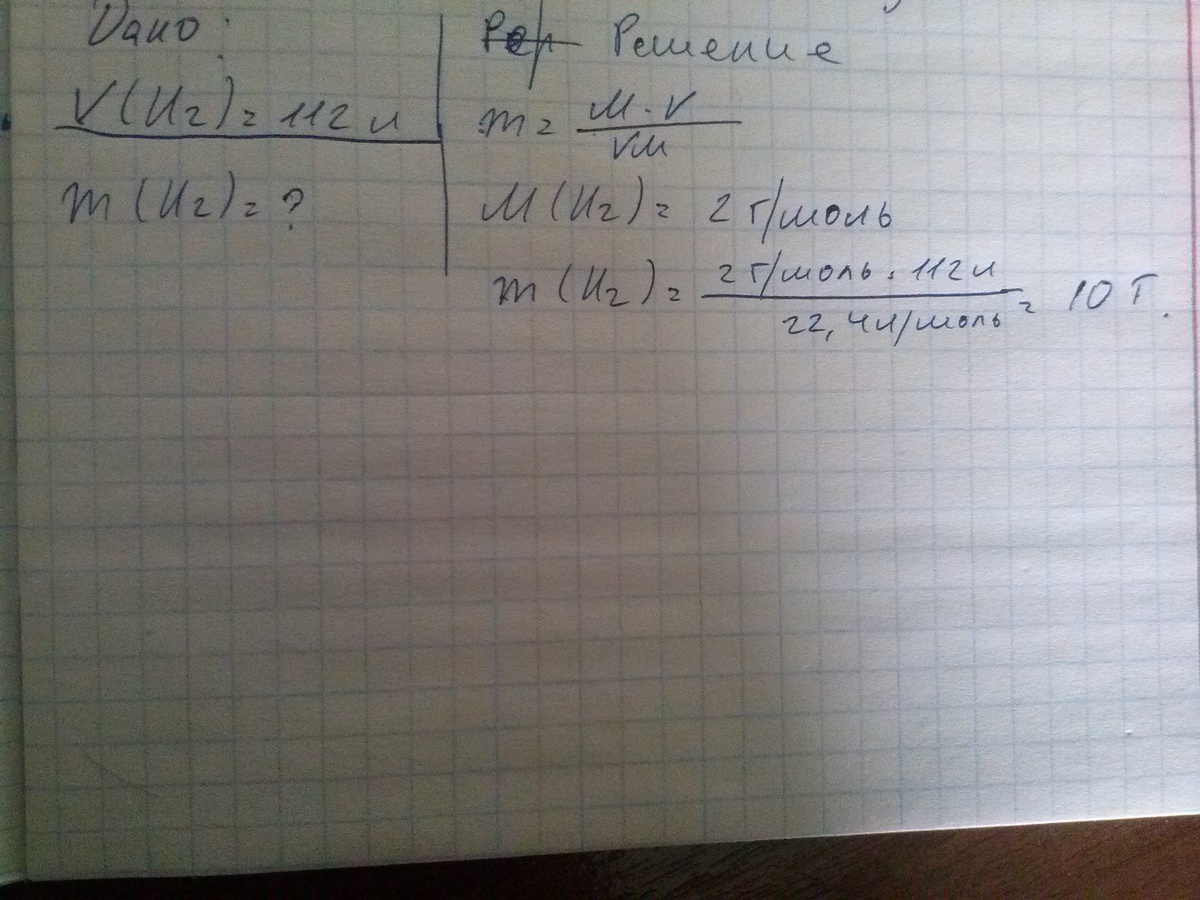 Дано:
V(H2) = 112 л
m(H2) = ?
Решение
m = M · V / VM
M(H2) = 2 г/моль
m(H2) = 2 г/моль · 112 л / 22,4 л/моль = 10 г.